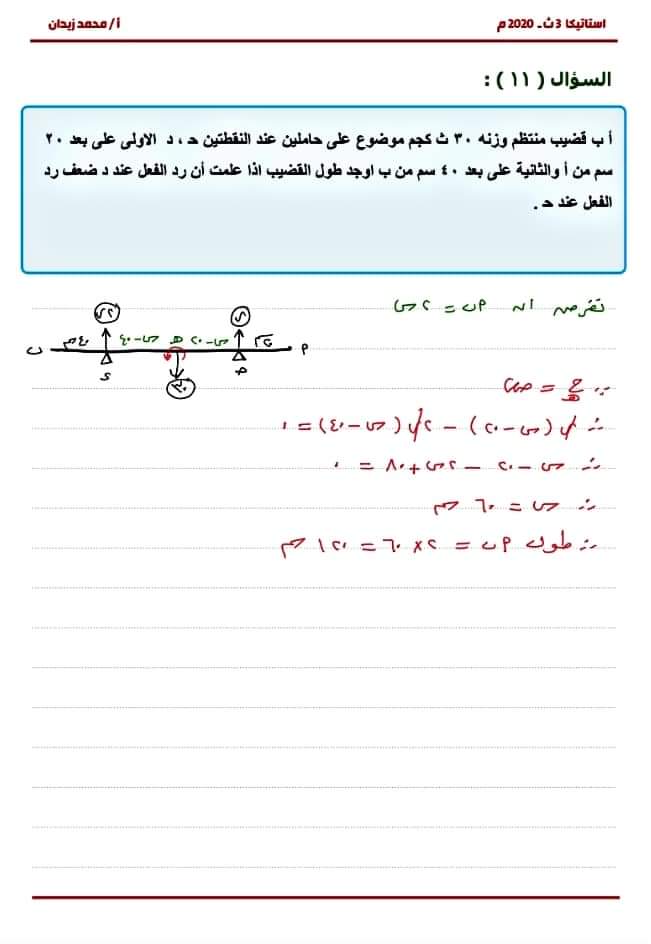 استاتيكا ٣ ث - 2020 م
أ / محمد زيدان
السؤال ( ١١ ) :
أ ب قضيب منتظم وزنه ٣٠ ث كجم موضوع على حاملين عند النقطتين حـ ، د الاولى على بعد ٢٠
سم من أ والثانية على بعد ٤٠ سم من ب اوجد طول القضيب اذا علمت أن رد الفعل عند د ضعف رد
الفعل عند حـ .
نفرض ان ٢ = ب٢ س
٢ر ر
ب ٤٠سم س-٤٠ هـ س-٢٠ ٢٠ ٢
د ٣٠ حـ
∵ جـ هـ = صفر
∴ ر (س - ٢٠) - ٢ر (س - ٤٠) = ٠
∴ س - ٢٠ - ٢س + ٨٠ = ٠
∴ س = ٦٠ سم
∴ طول ٢ ب = ٢ × ٦٠ = ١٢٠ سم